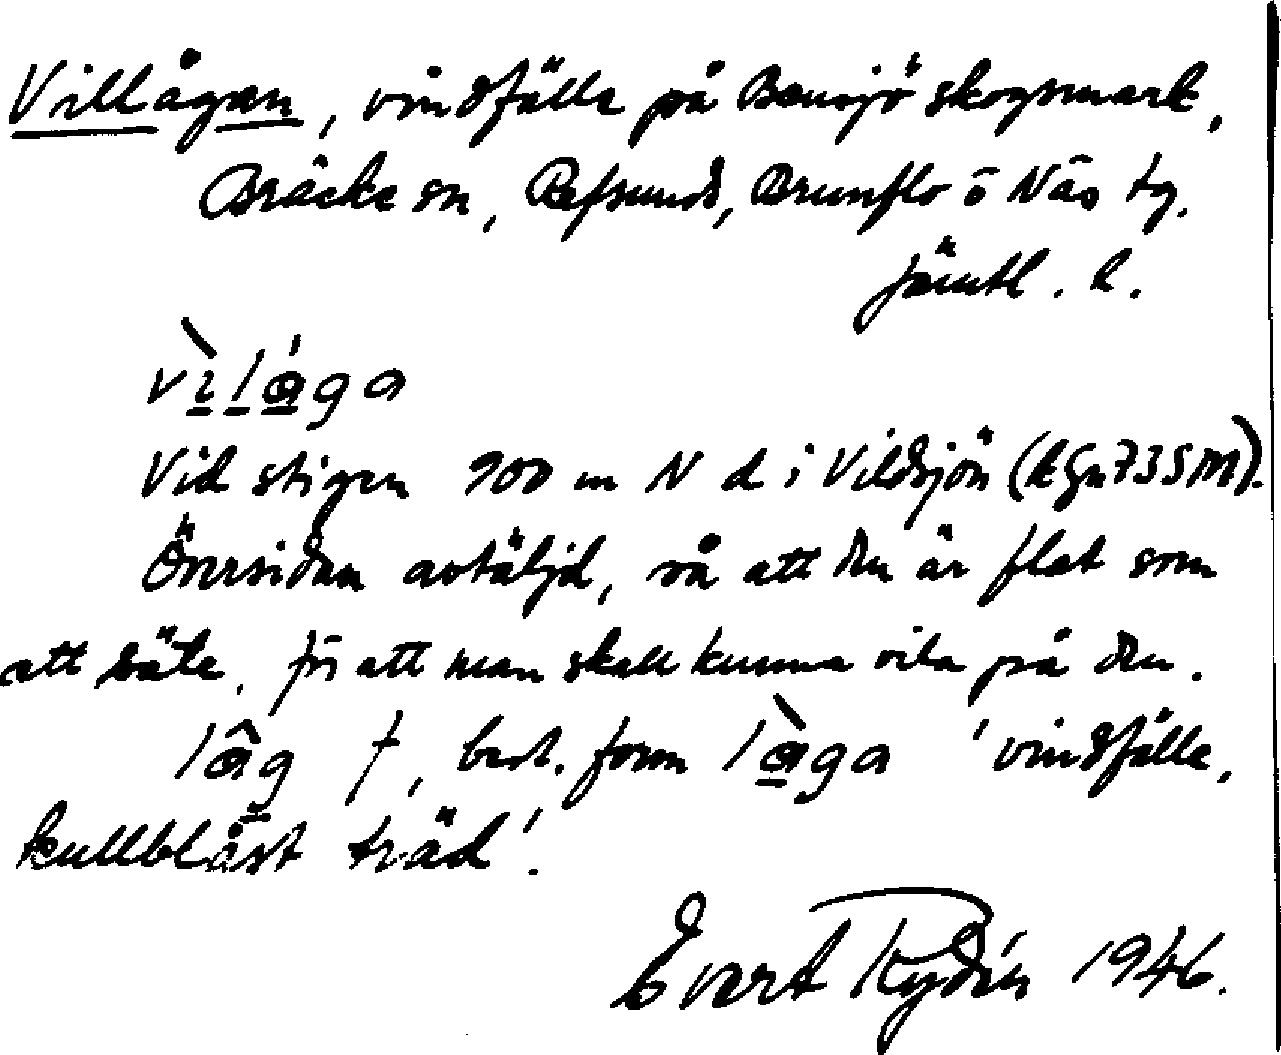 Villågan, vindfälle på Bensjö skogsmark,
Bräcke sn, Refsund, Brunflo o Näs tg.
Jämtl. l.
vìlåga
Vid stigen 900 m N d i Vildsjön (kGn735M).
Översidan avtäljd, så att den är flat som
ett säte, för att man skall kunna vila på den.
lâg f, best. form låga 'vindfälle,
kullblåst träd'.
Evert Rydén 1946.